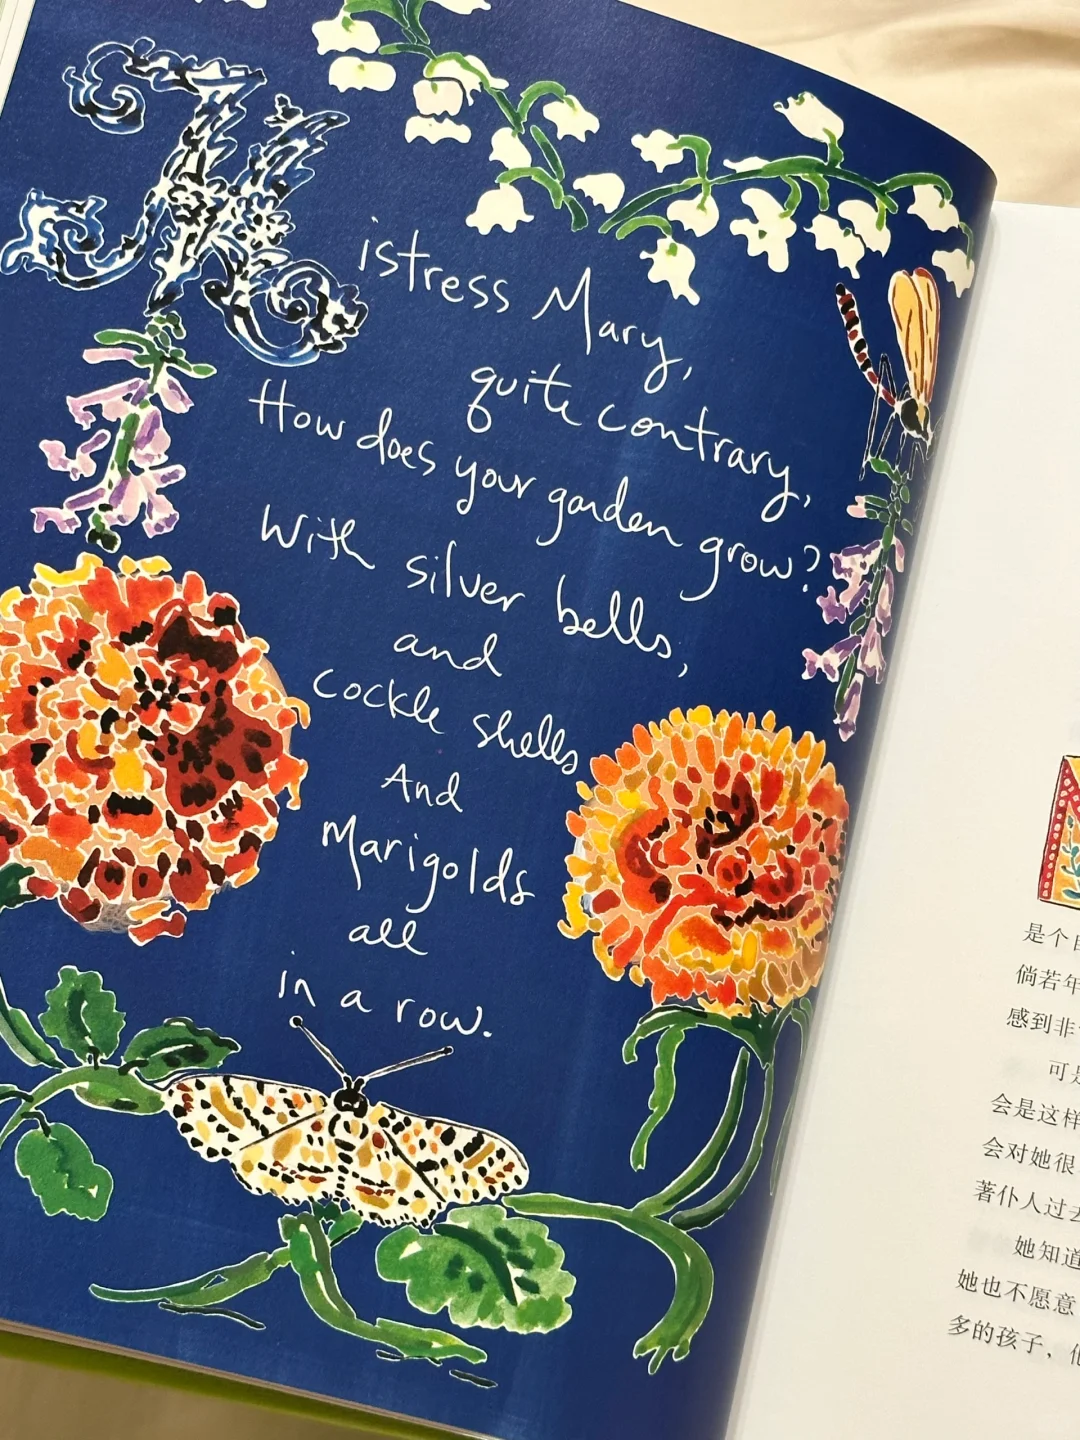 Mistress Mary,
quite contrary,
How does your garden grow?
With silver bells,
and
cockle shells
And
Marigolds
all
in a row.
是个
倘若年
感到非
可是
会是这样
会对她很
著仆人过去
她知道
她也不愿意
多的孩子，